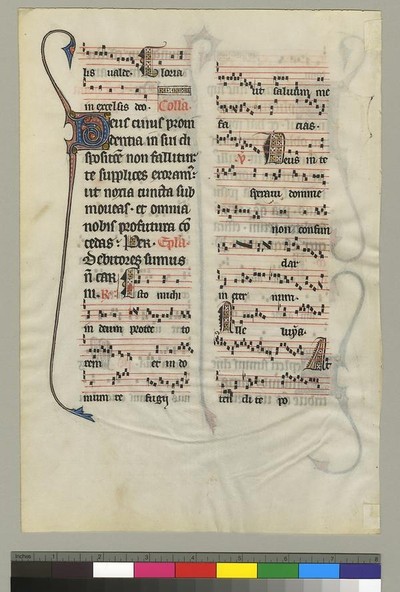 bis valde. Gloria.
in excelsis deo. Colla.
Deus cuius provi
dentia in sui di
spositiōe non fallitur:
te supplices exoram᷒:
ut noxia cuncta sub
moveas. et omnia
nobis profutura cō
cedas. Per. Epla.
Debitores sumus
nō car
ni. R. Esto michi
in deum protec to
rem et in do
mum re fugij
ut salvum me
fa cias.
V Deus in te
speravi domine
non confun
dar
in eter num.
Alle luya.
At
ten di te po
inches 1 2 3 4 5 6 7 8